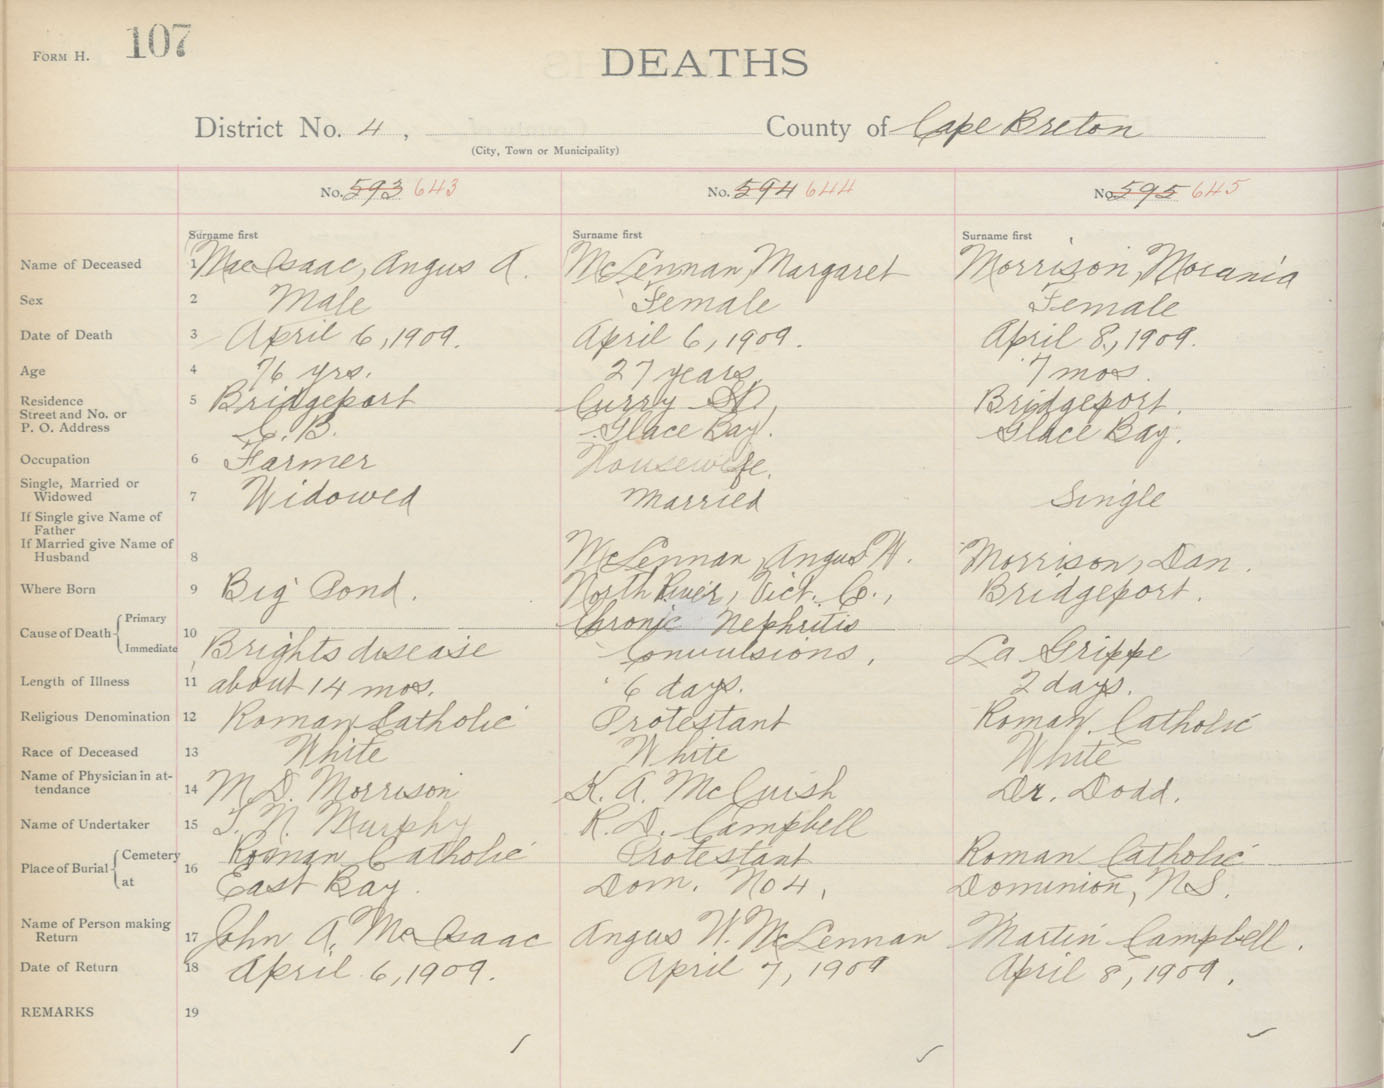 FORM H. 107
DEATHS
District No. 4, County of Cape Breton
(City, Town or Municipality)
No. 593 643 No. 594 644 No. 595 645
Surname first Surname first Surname first
Name of Deceased 1 MacIsaac, Angus A. McLennan, Margaret Morrison,
Sex 2 Male Female Female
Date of Death 3 April 6, 1909. April 6, 1909. April 8, 1909.
Age 4 76 yrs. 27 years. 7 mos.
Residence 5 Bridgeport Curry St, Bridgeport.
Street and No. or
P. O. Address C. B. Glace Bay. Glace Bay.
Occupation 6 Farmer Housewife.
Single, Married or
Widowed 7 Widowed Married Single
If Single give Name of
Father
If Married give Name of
Husband 8 McLennan, Angus W. Morrison, Dan.
Where Born 9 Big Pond. North River, Vict. Co., Bridgeport.
Cause of Death Primary Chronic Nephritis
10 Immediate Brights disease Convulsions, La Grippe
Length of Illness 11 about 14 mos. 6 days. 2 days.
Religious Denomination 12 Roman Catholic Protestant Roman Catholic
Race of Deceased 13 White White White
Name of Physician in at-
tendance 14 M. D. Morrison K. A. McCuish Dr. Dodd.
Name of Undertaker 15 T. N. Murphy R. D. Campbell
Place of Burial Cemetery Roman Catholic Protestant Roman Catholic
16 at East Bay. Dom. No 4, Dominion, N.S.
Name of Person making
Return 17 John A. MacIsaac Angus W. McLennan Martin Campbell.
Date of Return 18 April 6, 1909. April 7, 1909 April 8, 1909.
REMARKS 19